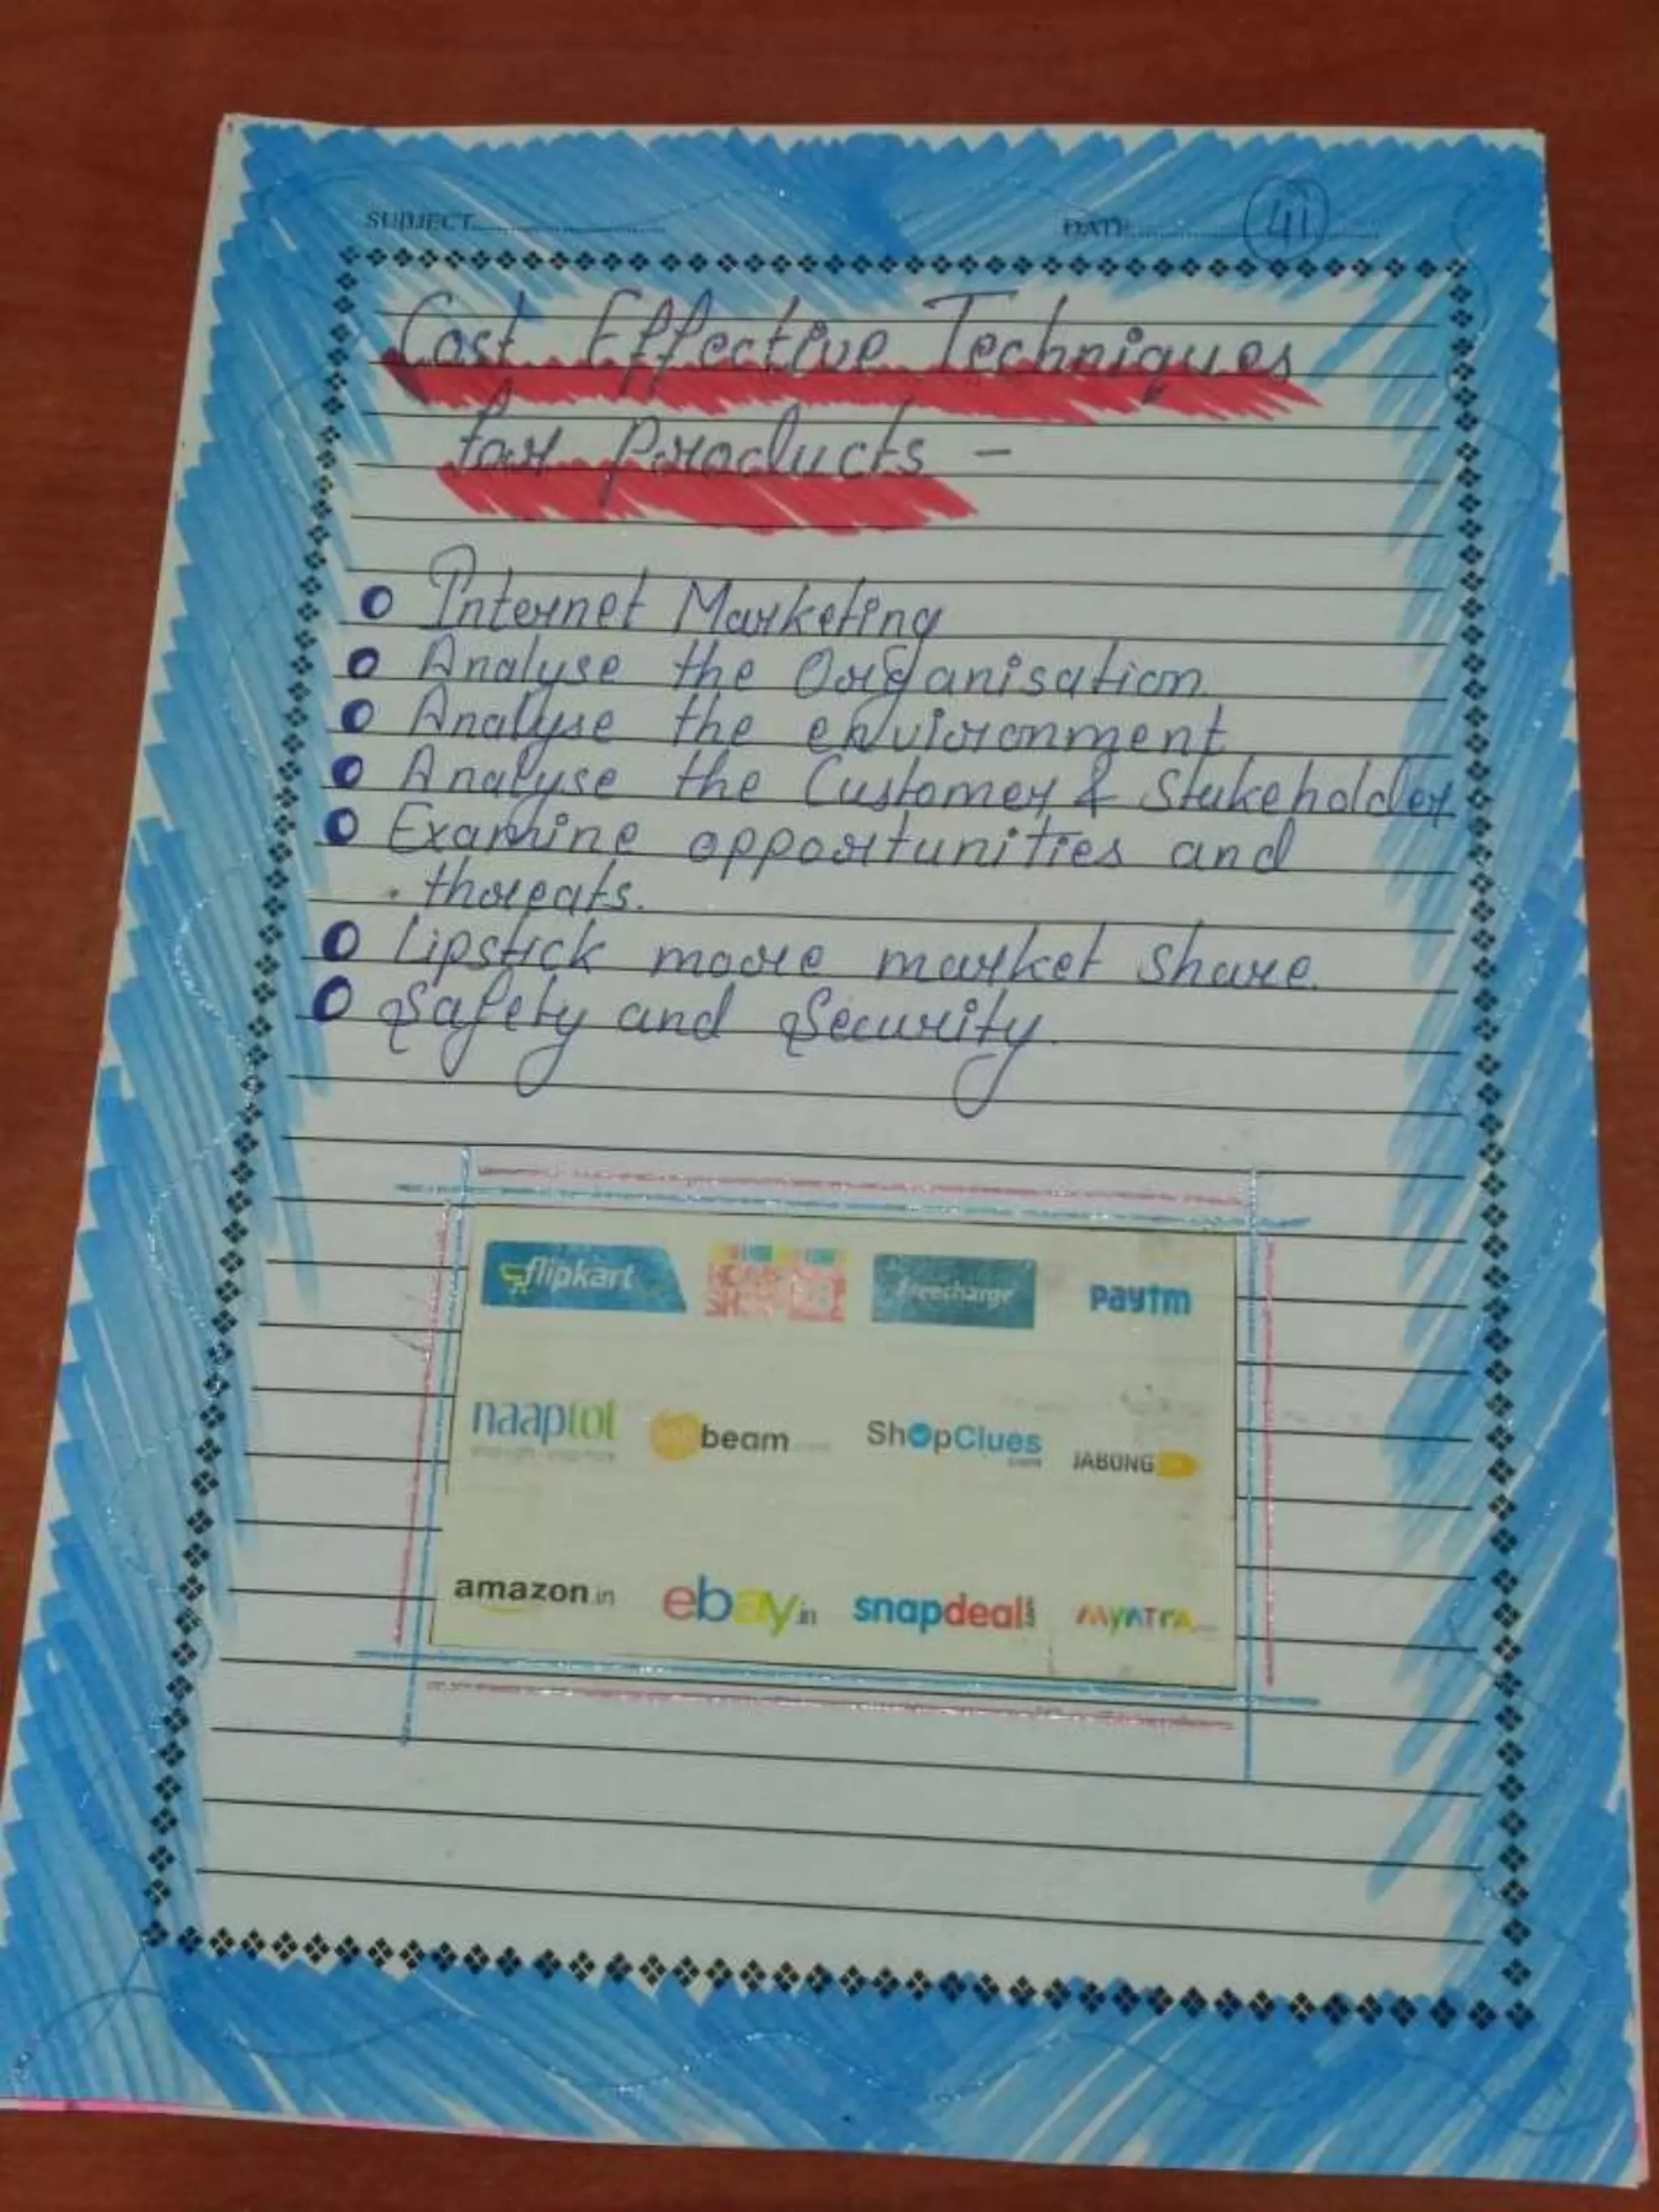 SUBJECT
DATE
41
Cost Effective Techniques
for Products -
Internet Marketing
Analyse the Organisation
Analyse the environment
Analyse the Customer & Stakeholder
Examine opportunities and
threats.
Lipstick more market share.
Safety and Security.
flipkart HOME SHOP freecharge paytm
naaptol beam ShopClues JABONG
amazon.in ebay.in snapdeal myntra